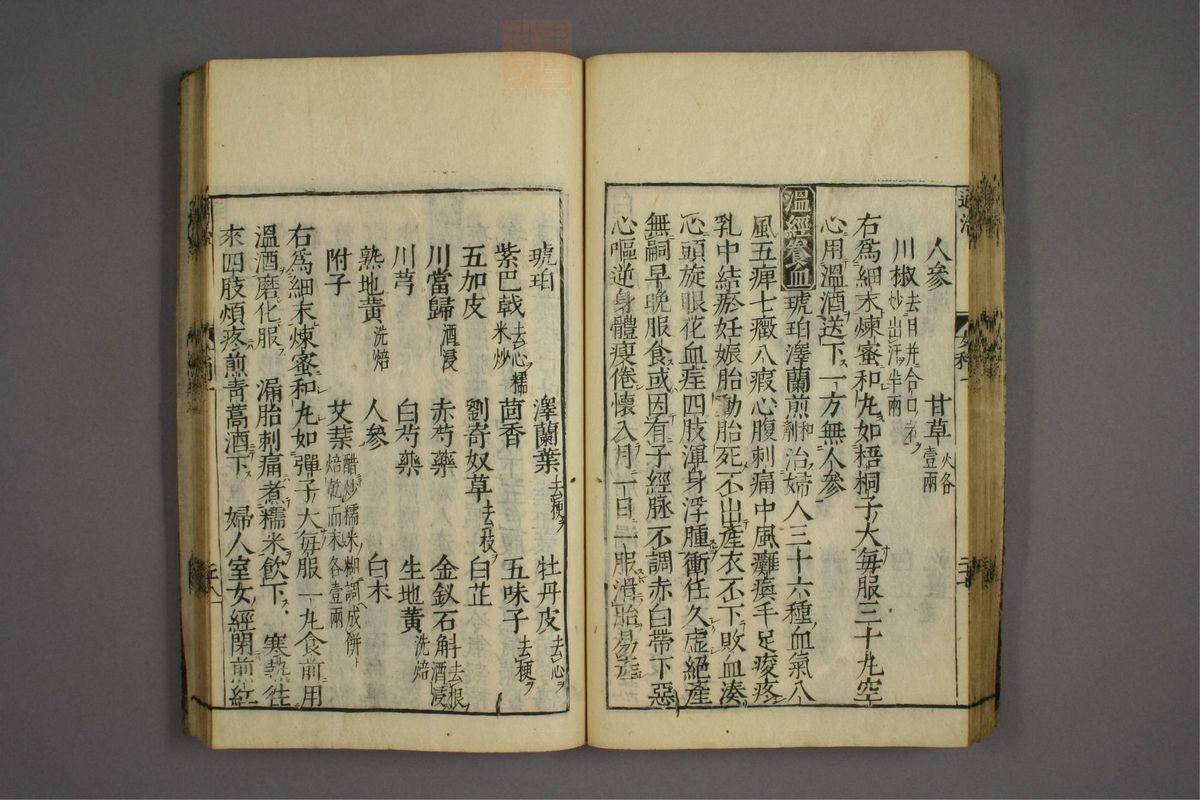 人參　甘草火各壹兩
川椒去目并合口ノヲ炒出汗ヲ半兩
右為細末煉蜜和丸如梧桐子大每服三十丸空
心用溫酒送下一方無人參
溫經養血　琥珀澤蘭煎和劑治婦人三十六種血氣八
風五痺七癥八瘕心腹刺痛中風癱瘓手足痠疼
乳中結瘀妊娠胎動胎死不出產衣不下敗血湊
心頭旋眼花血症四肢渾身浮腫衝任久虛絕產
無嗣早晚服食或因有子經脉不調赤白帶下惡
心嘔逆身體瘦倦懷入月一日一服滑胎易產
琥珀　澤蘭葉去梗ヲ　牡丹皮去心ヲ
紫巴戟去心ヲ糯米炒　茴香　五味子去梗ヲ
五加皮　劉寄奴草去枝ヲ　白芷
川當歸酒浸　赤芍藥　金釵石斛去根ヲ酒浸
川芎　白芍藥　生地黃洗焙
熟地黃洗焙　人參　白朮
附子　艾葉醋炒糯米糊調成餅焙乾而末各壹兩
右為細末煉蜜和丸如彈子大每服一丸食前用
溫酒磨化服　漏胎刺痛煮糯米飲下　寒熱往
來四肢煩疼煎青蒿酒下　婦人室女經閉煎紅